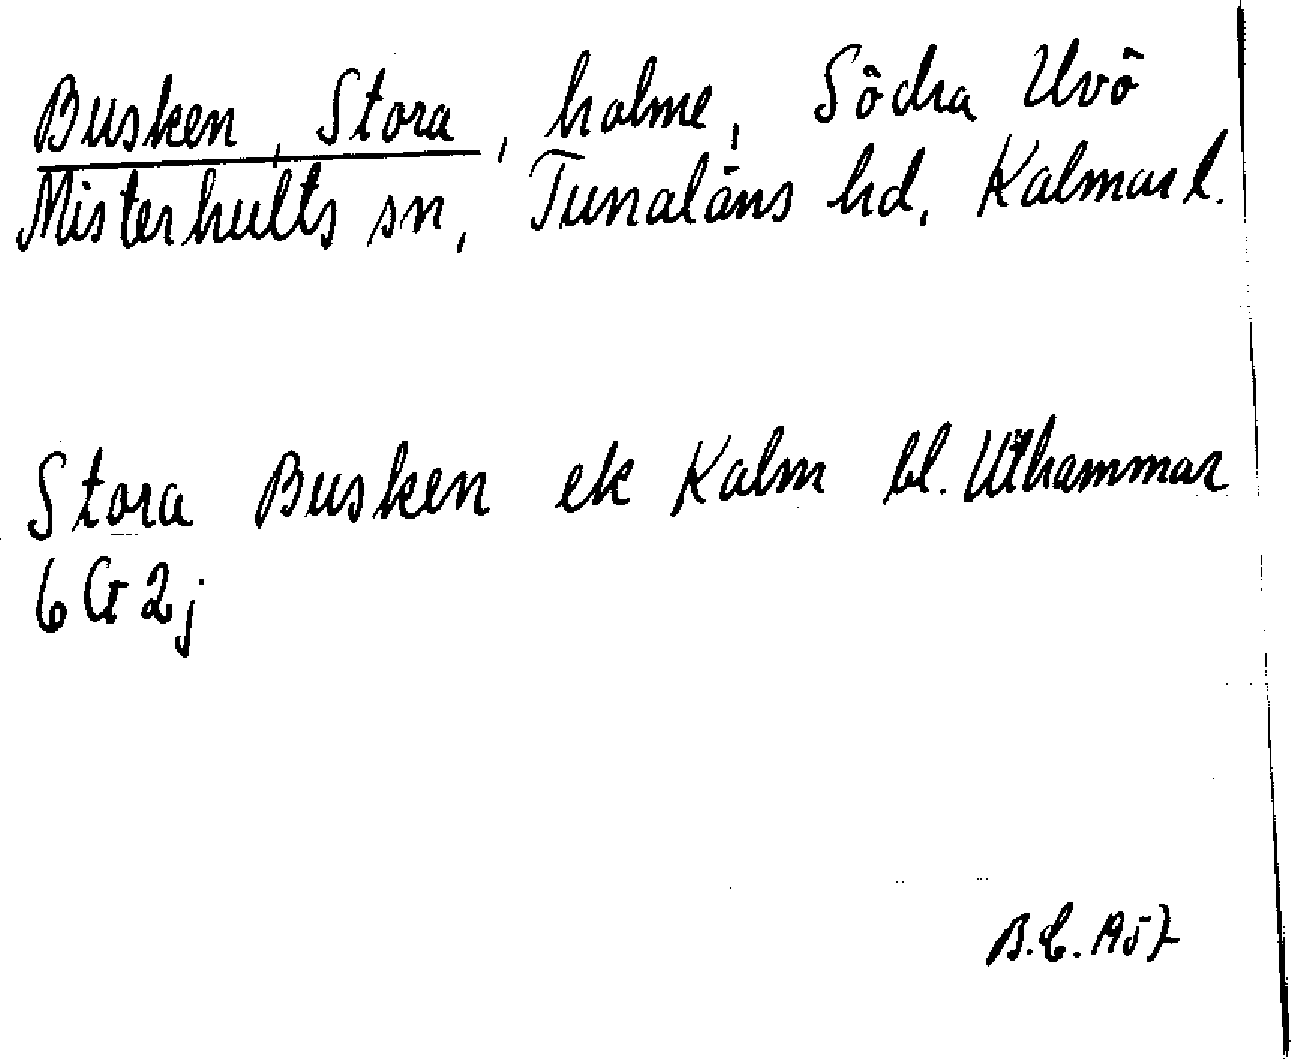 Busken, Stora, holme, Södra Uvö
Misterhults sn, Tunaläns hd, Kalmar l.
Stora Busken ek Kalm bl. Uthammar
6G2j
B.C. 1957